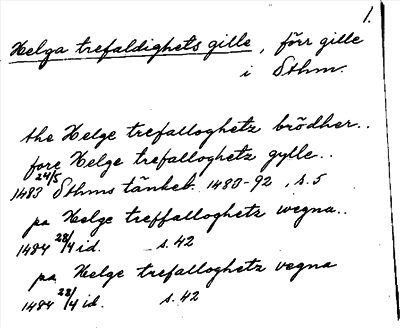 1.
Helga trefaldighets gille, förr gille
i Sthm.
the Helge trefalloghetz brödher..
fore Helge trefalloghetz gylle..
1483 24/5 Sthms tänkeb. 1483-92, s. 5
pa Helge treffalloghetz wegna..
1484 28/4 id. s. 42
pa Helge trefalloghetz vegna
1484 28/4 id. s. 42